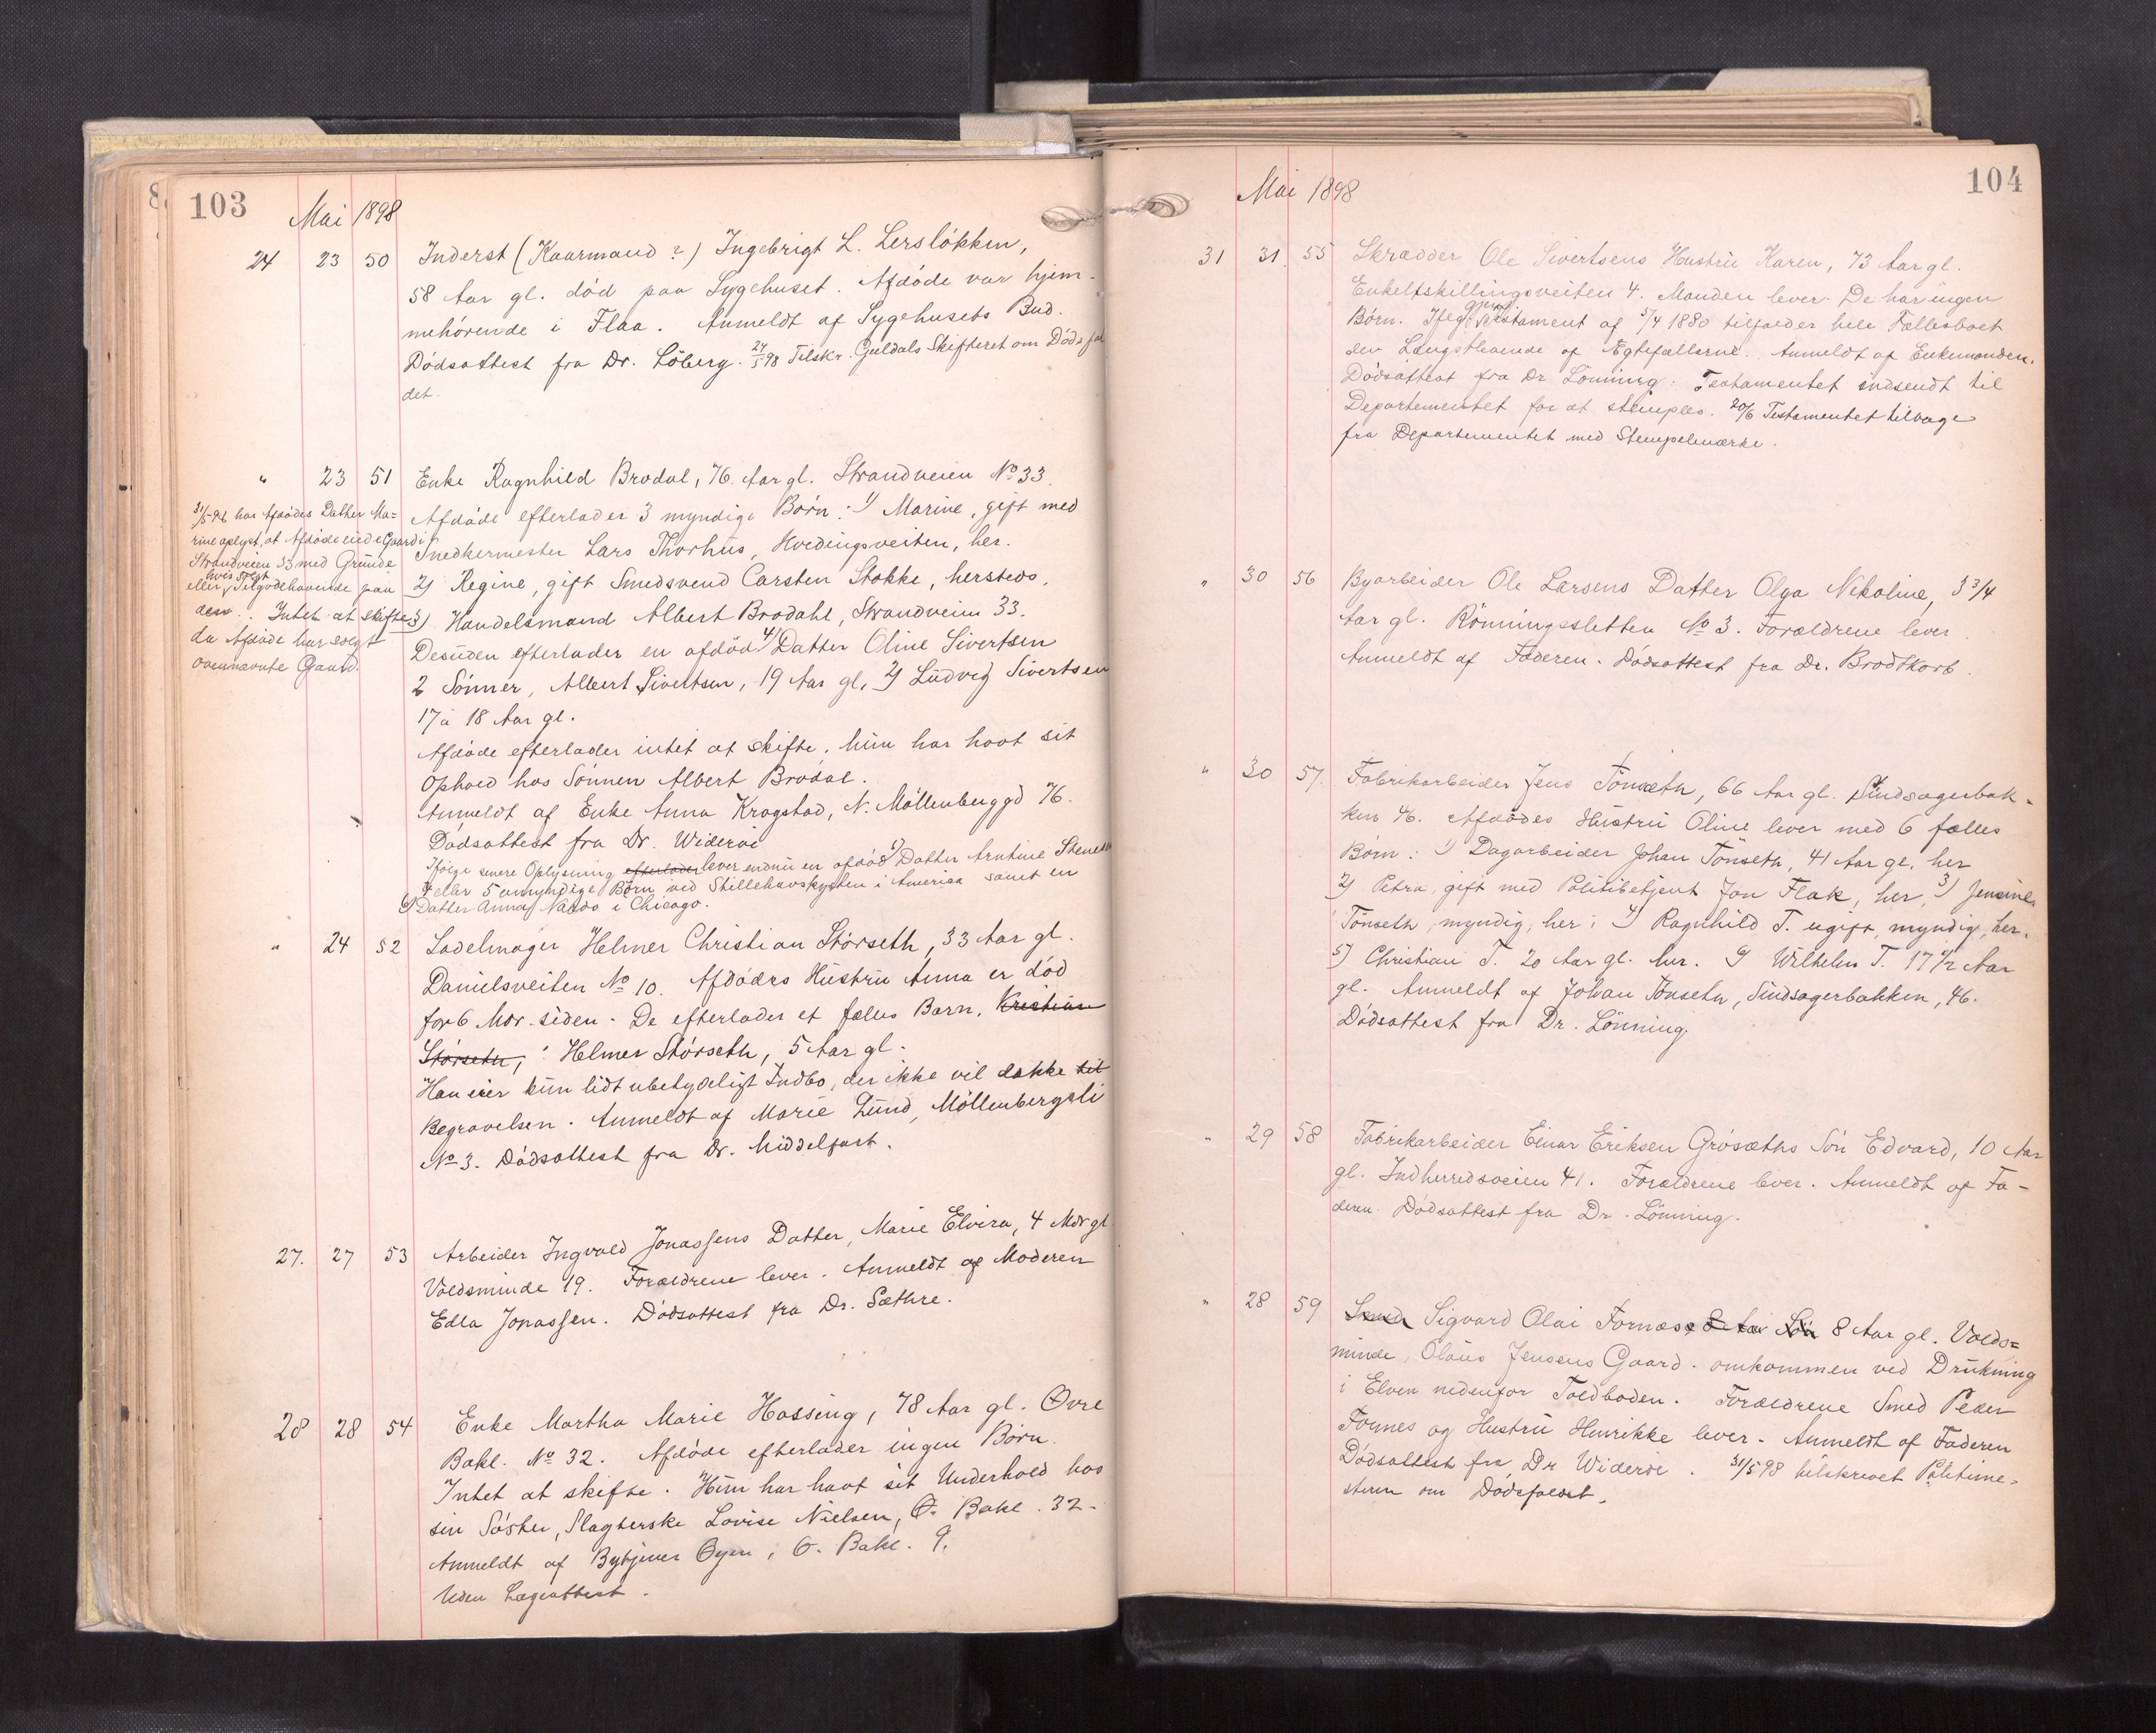 103
Mai 1898
24 23 50 Inderst (Kaarmand?) Ingebrigt L. Lersløkken,
58 Aar gl. død paa Sygehuset. Afdøde var hjem-
mehørende i Flaa. Anmeldt af Sygehusets Bud.
Dødsattest fra Dr. Löberg. 24/5 98 Tilskr. Guldals Skifteret om Dødsfal
det.
" 23 51 Enke Ragnhild Brodal, 76 Aar gl. Strandveien No 33.
Afdøde efterlader 3 myndige Børn: 1) Marine, gift med
Snedkermester Lars Thorhus, Hvedingsveiten, her.
2) Regine, gift Smedsvend Carsten Stokke, hersteds.
3) Handelsmand Albert Brodahl, Strandveien 33.
Desuden efterlader en afdød 4) Datter Oline Sivertsen
2 Sønner, Albert Sivertsen, 19 Aar gl, 2) Ludvig Sivertsen
17 à 18 Aar gl.
Afdøde efterlader intet at skifte, hun har havt sit
Ophold hos Sønnen Albert Brodal.
Anmeldt af Enke Anna Kragstad, N. Møllenberggd 76.
Dødsattest fra Dr. Widerøe
Ifølge senere Oplysning efterlader lever endnu en afdød 5) Datter Arntine
4 eller 5 umyndige Børn ved Stillehavskysten i Amerika samt en
6) Datter Anna i Chicago.
31/5-98 har Afdødes Datter Ma-
rine oplyst, at Afdøde eiede Gaard i
Strandveien 33 med Grunde
hvis solgt
eller Tilgodehavende paa
den. Intet at skifte
da Afdøde har solgt
ovennævnte Gaard.
" 24 52 Sadelmager Helmer Christian Störseth, 33 Aar gl.
Danielsveiten No 10. Afdødes Hustru Anna er død
for 6 Mdr. siden. De efterlader et fælles Barn, Kristian
Störseth, : Helmer Störseth, 5 Aar gl.
Han eier kun lidt ubetydeligt Indbo, der ikke vil dække til
Begravelsen. Anmeldt af Marie Lund, Møllenbergsli
No 3. Dødsattest fra Dr. Middelfart.
27. 27 53 Arbeider Ingvald Jonassens Datter, Marie Elvira, 4 Mdr gl.
Voldsminde 19. Forældrene lever. Anmeldt af Moderen
Edla Jonassen. Dødsattest fra Dr. Sæthre.
28 28 54 Enke Martha Marie Hassing, 78 Aar gl. Øvre
Bakl. No 32. Afdøde efterlader ingen Børn.
Intet at skifte. Hun har havt sit Underhold hos
sin Søster, Slagterske Lovise Nielsen, Ø. Bakl. 32.
Anmeldt af Bytjener Øyen, Ø. Bakl. 9.
Uden Lægeattest.
104
Mai 1898
31 31. 55 Skrædder Ole Sivertsens Hustru Karen, 73 Aar gl.
Enkeltskillingsveiten 4. Manden lever. De har ingen
Børn. Ifølge gjens. Testament af 5/4 1880 tilfalder hele Fællesboet
den Længstlevende af Ægtefællerne. Anmeldt af Enkemanden.
Dødsattest fra Dr Lönning. Testamentet indsendt til
Departementet for at stemples. 20/6 Testamentet tilbage
fra Departementet med Stempelmærke.
" 30 56 Byarbeider Ole Larsens Datter Olga Nikoline, 3 3/4
Aar gl. Rönningssletten No 3. Forældrene lever.
Anmeldt af Faderen. Dødsattest fra Dr. Brodtkorb.
" 30 57. Fabrikarbeider Jens Tönseth, 66 Aar gl. Sindsagerbak-
ken 46. Afdødes Hustru Oline lever med 6 fælles
Børn: 1) Dagarbeider Johan Tönseth, 41 Aar gl. her
2) Petra, gift med Politibetjent Jon Flak, her, 3) Jensine
Tönseth, myndig, her; 4) Ragnhild T. ugift, myndig, her.
5) Christian T. 20 Aar gl. her. 6) Wilhelm T. 17 1/2 Aar
gl. Anmeldt af Johan Tönseth, Sindsagerbakken, 46.
Dødsattest fra Dr. Lönning.
" 29 58 Fabrikarbeider Einar Eriksen Grösæths Søn Edvard, 10 Aar
gl. Indherredsveien 41. Forældrene lever. Anmeldt af Fa-
deren. Dødsattest fra Dr. Lönning.
" 28 59 Sigvard Olai Fornæs Søn 8 Aar gl. Volds-
minde, Olaus Jensens Gaard. omkommen ved Drukning
i Elven nedenfor Toldboden. Forældrene Smed Peder
Fornes og Hustru Henrikke lever. Anmeldt af Faderen
Dødsattest fra Dr Widerøe. 31/5 98 tilskrevet Politime-
steren om Dødsfaldet.